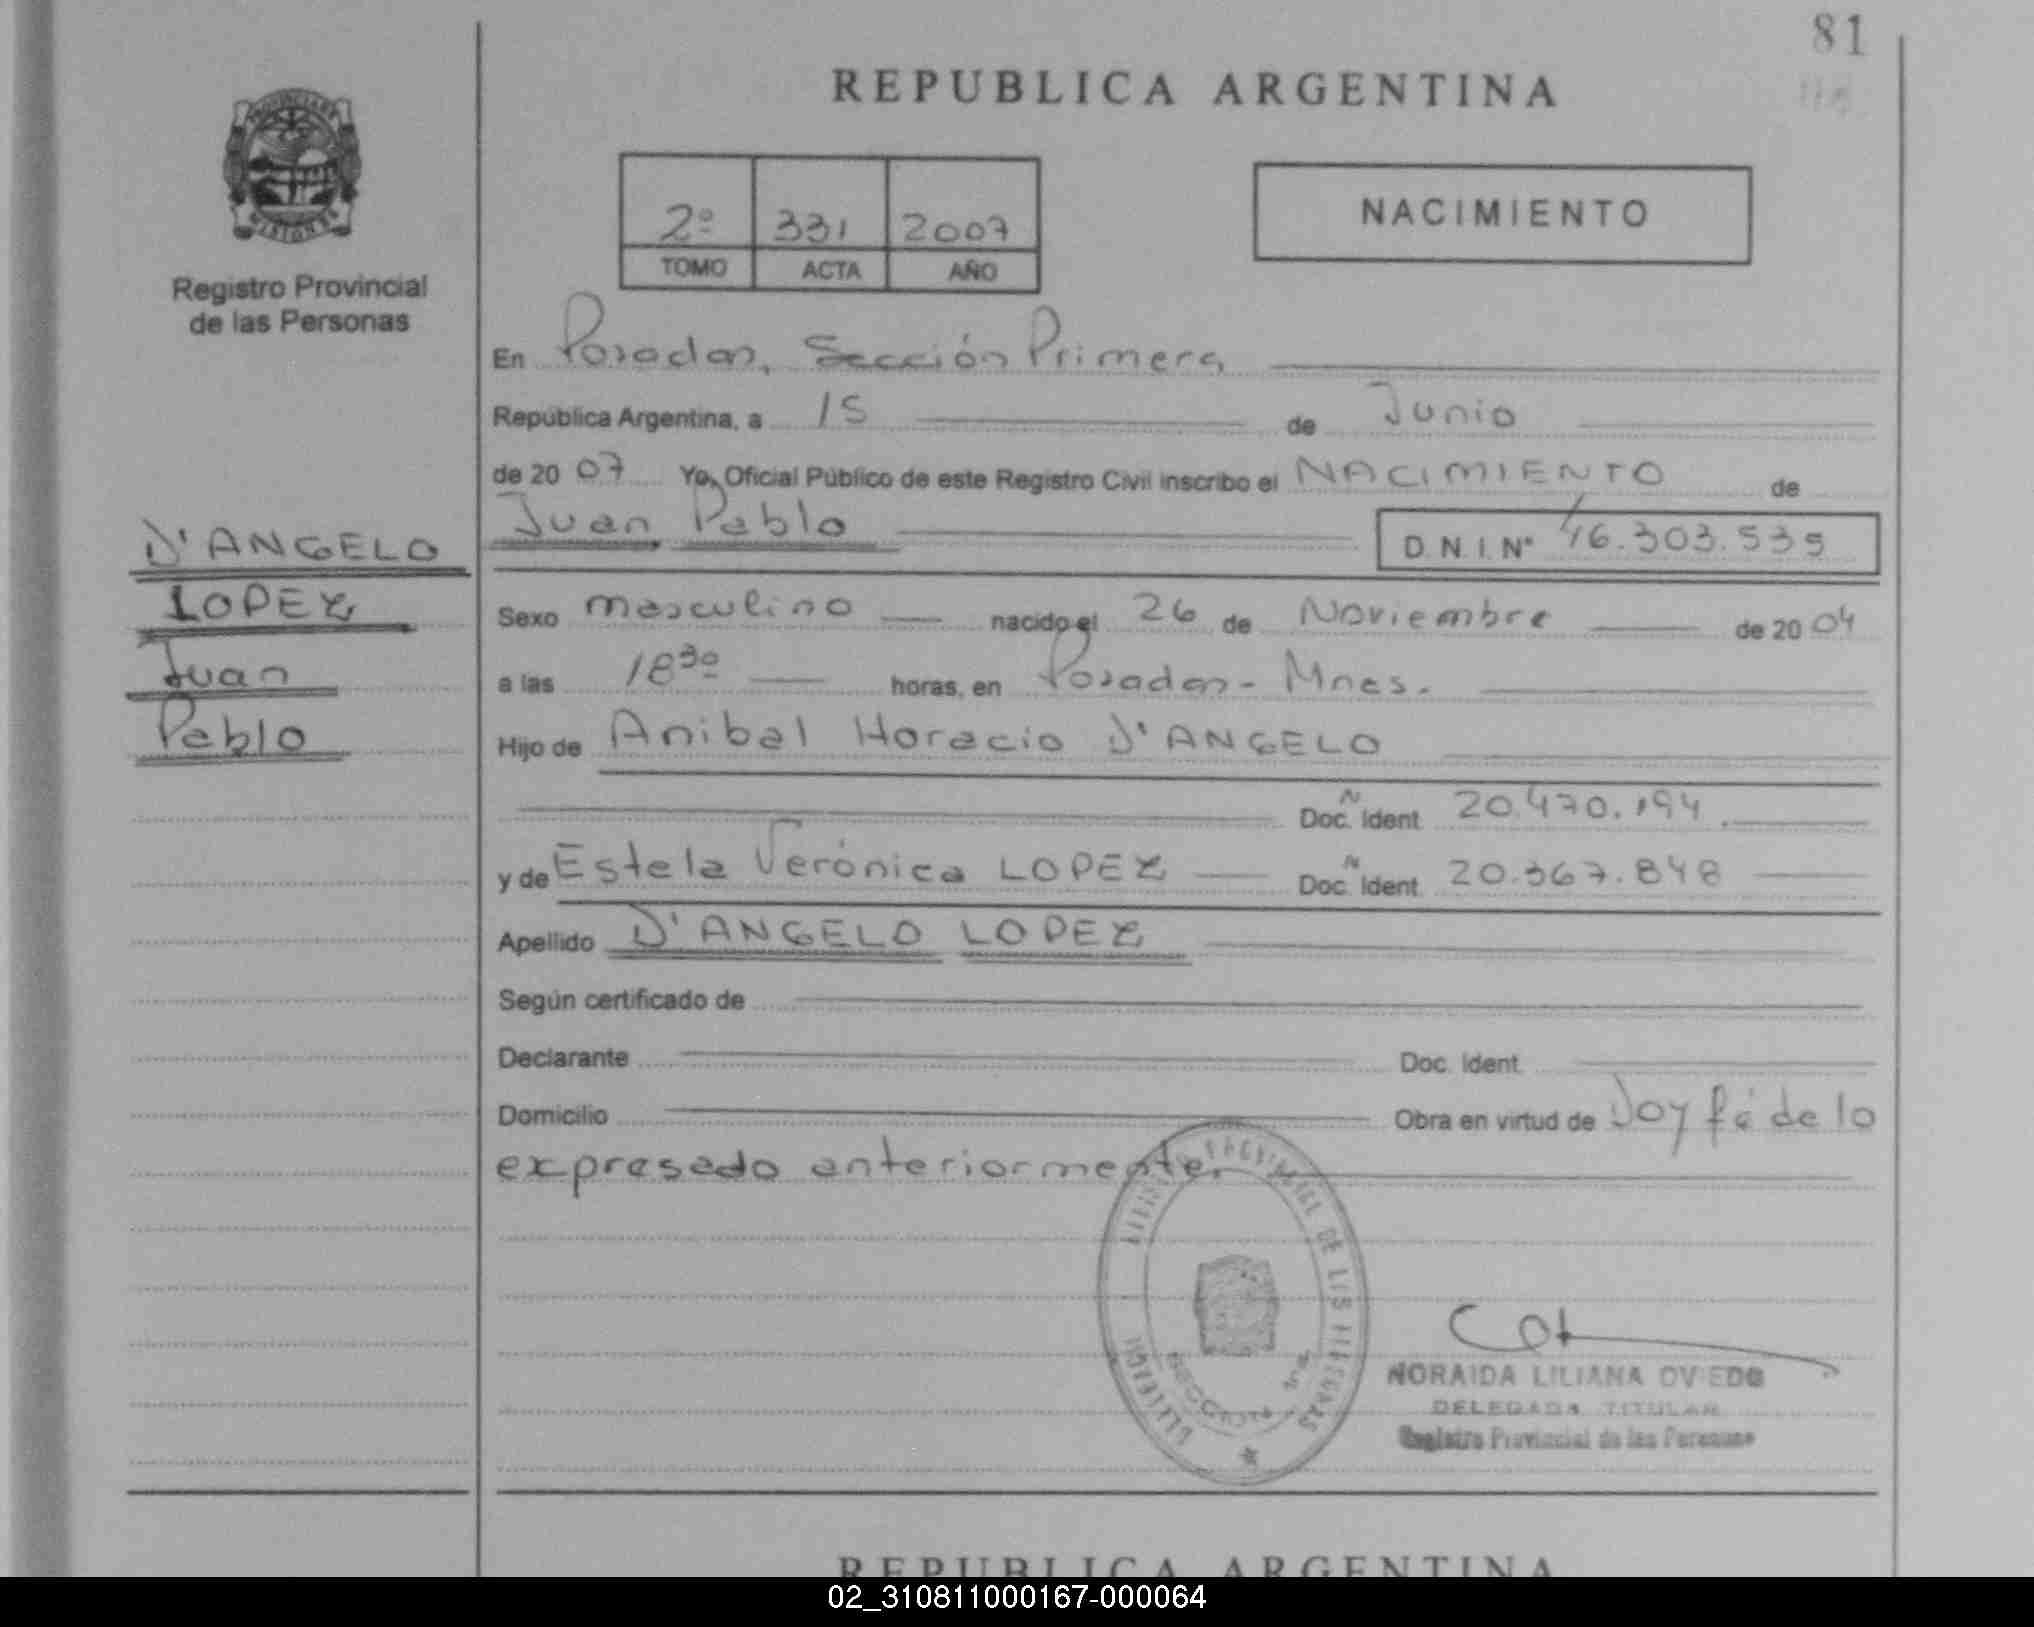 81
REPUBLICA ARGENTINA
PROVINCIA DE
MISIONES
Registro Provincial
de las Personas
2º 331 2007
TOMO ACTA AÑO
NACIMIENTO
En Posadas, Sección Primera
República Argentina, a 15 de Junio
de 20 07 Yo, Oficial Público de este Registro Civil inscribo el NACIMIENTO de
Juan Pablo D.N.I. Nº 46.303.535
D'ANGELO
LOPEZ
Juan
Pablo
Sexo masculino nacido el 26 de Noviembre de 20 04
a las 18 30 horas, en Posadas - Mnes.
Hijo de Anibal Horacio D'ANGELO
Doc. Ident. N 20.470.194.
y de Estela Verónica LOPEZ Doc. Ident. N 20.367.848
Apellido D'ANGELO LOPEZ
Según certificado de
Declarante Doc. Ident.
Domicilio Obra en virtud de Doy fé de lo
expresado anteriormente.
REGISTRO PROVINCIAL DE LAS PERSONAS
SECCION 1ra
NORAIDA LILIANA OVIEDO
DELEGADA TITULAR
Registro Provincial de las Personas
REPUBLICA ARGENTINA
02_310811000167-000064